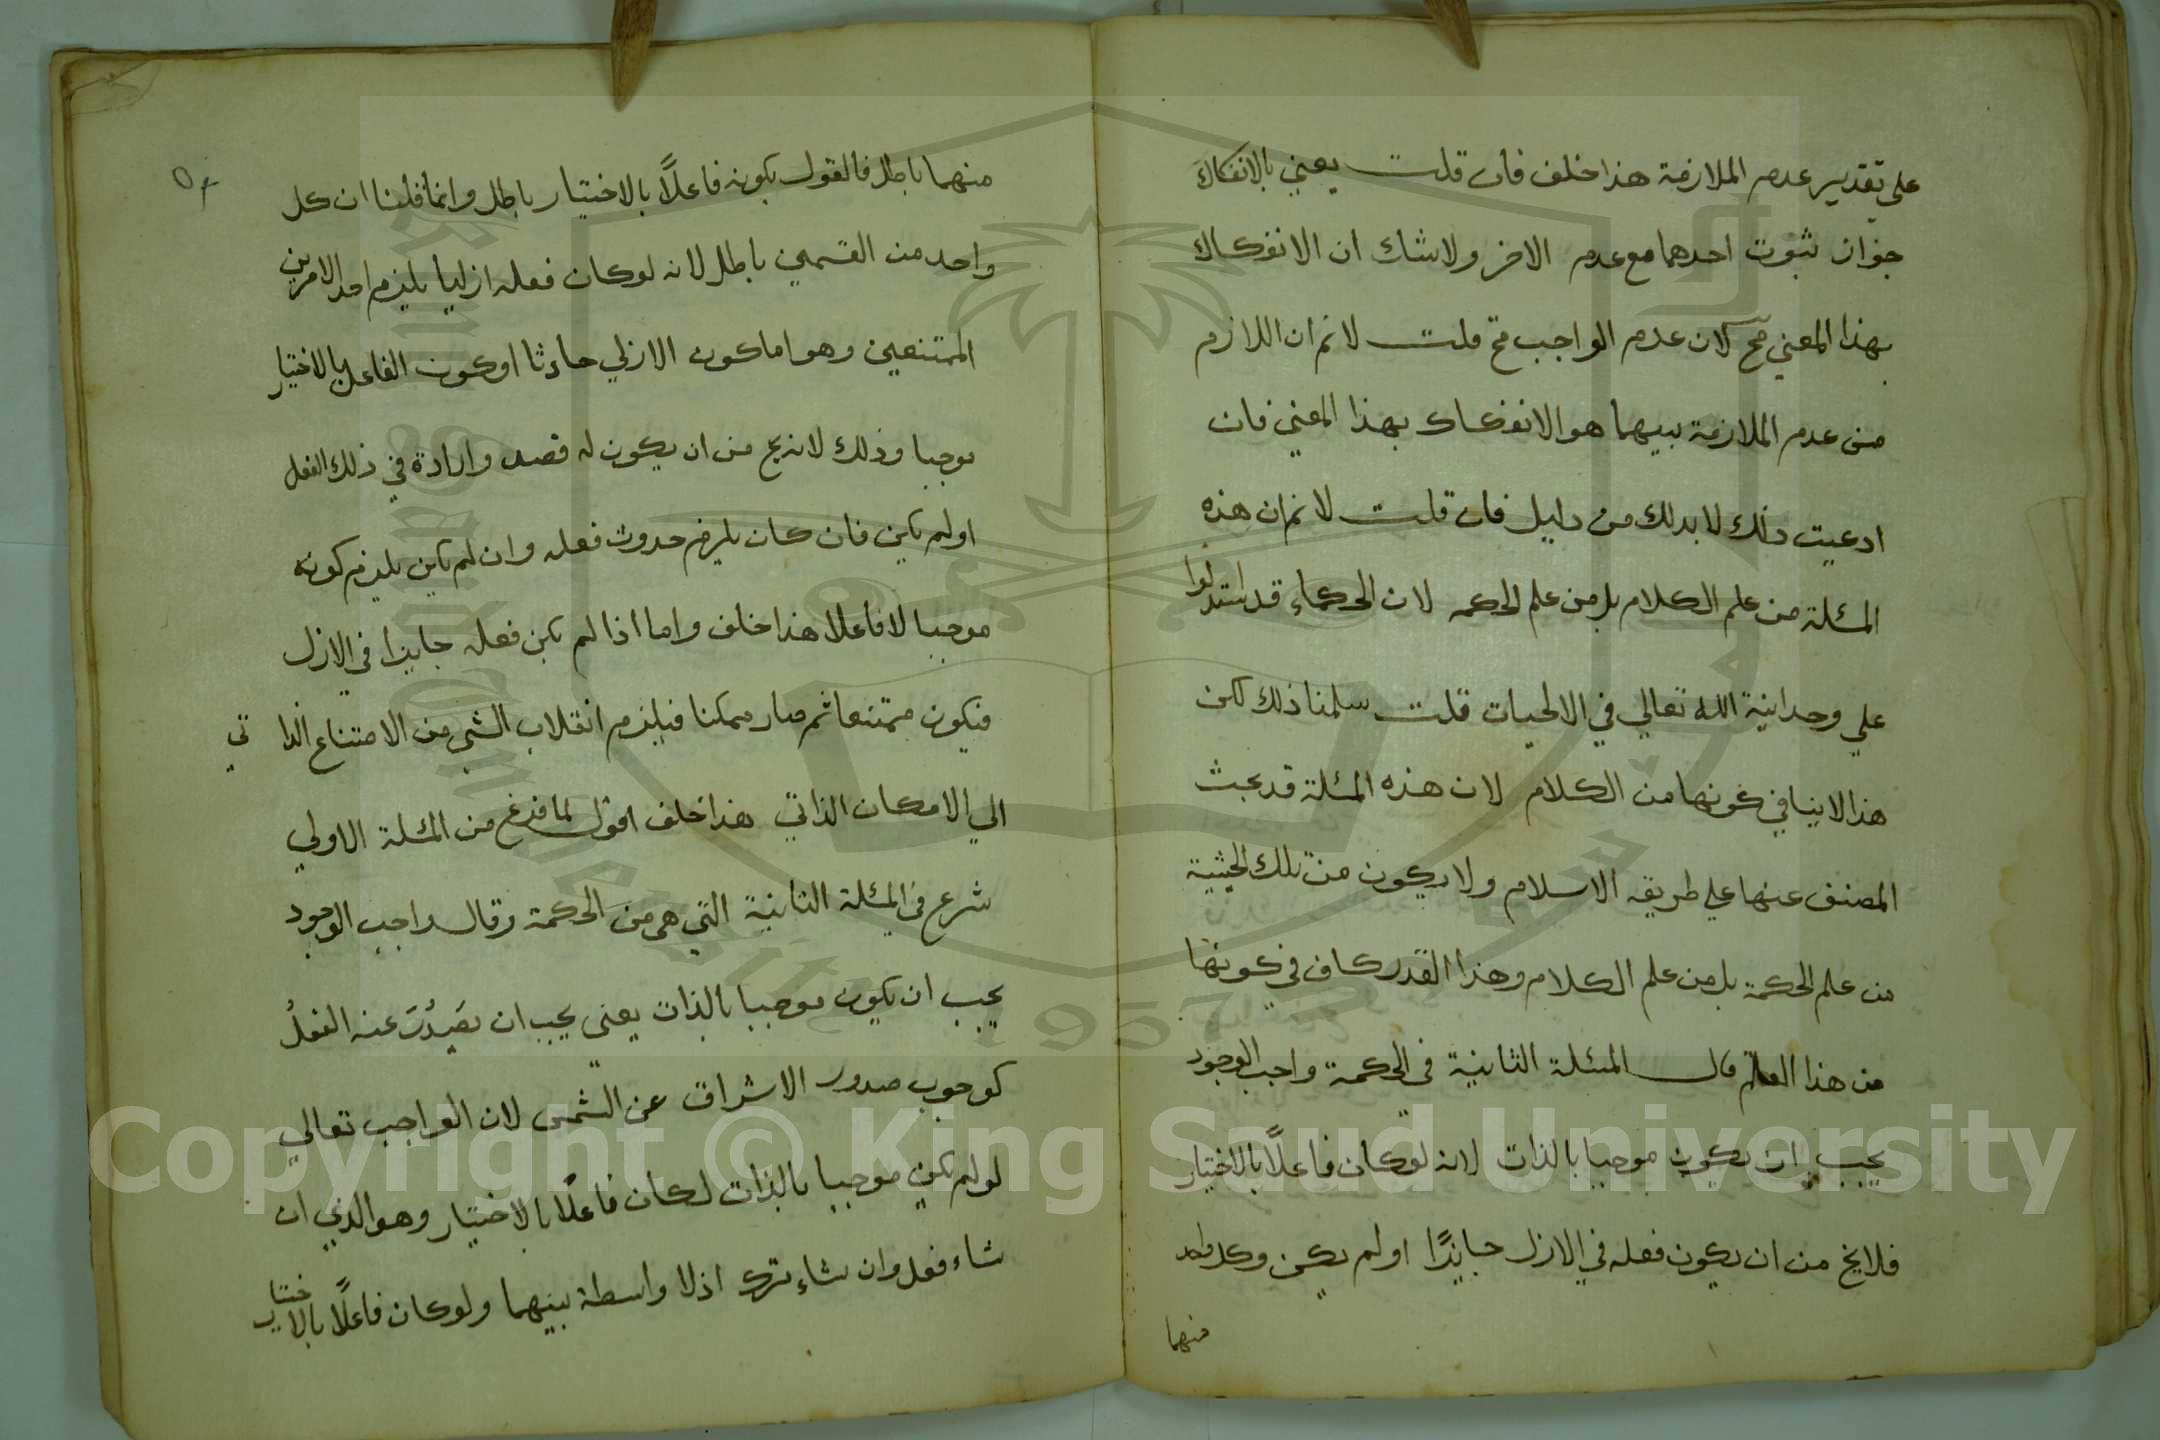 علي تقدير عدم الملازمة هذا خلف فان قلت يعني بالانفكاك
جواز ثبوت احدهما مع عدم الاخر ولا شك ان الانفكاك
بهذا المعني مح لان عدم الواجب مح قلت لا نم ان اللازم
من عدم الملازمة بينهما هو الانفكاك بهذا المعني فان
ادعيت ذلك لا بد لك من دليل فان قلت لا نم ان هذه
المسئلة من علم الكلام بل من علم الحكمه لان الحكماء قد استدلوا
علي وحدانية الله تعالي في الالهيات قلت سلمنا ذلك لكن
هذا لا ينافي كونها من الكلام لان هذه المسئلة قد بحث
المصنف عنها علي طريقه الاسلام ولا يكون من تلك الحيثية
من علم الحكمة بل من علم الكلام وهذا القدر كاف في كونها
من هذا العلم قال المسئلة الثانية في الحكمة واجب الوجود
يجب ان يكون موجبا بالذات لانه لو كان فاعلًا بالاختيار
فلا يخ من ان يكون فعله في الازل جايزًا او لم يكن وكل واحد
منهما
منهما باطل فالقول بكونه فاعلًا بالاختيار باطل وانما قلنا ان كل
واحد من القسمين باطل لانه لو كان فعله ازليا يلزم احد الامرين
الممتنعين وهو اما كون الازلي حادثا او كون الفاعل بالاختيار
موجبا وذلك لانه يخ من ان يكون له قصد وارادة في ذلك الفعل
او لم يكن فان كان يلزم حدوث فعله وان لم يكن يلزم كونه
موجبا لا فاعلا هذا خلف واما اذا لم يكن فعله جايزا في الازل
فيكون ممتنعا ثم صار ممكنا فيلزم انقلاب الشي من الامتناع الذا تي
الي الامكان الذاتي هذا خلف اقول لما فرغ من المسئلة الاولي
شرع في المسئلة الثانية التي هي من الحكمة وقال واجب الوجود
يجب ان يكون موجبا بالذات يعني يجب ان يصدر عنه الفعل
كوجوب صدور الاشراق عن الشمس لان الواجب تعالي
لو لم يكن موجبا بالذات لكان فاعلًا بالاختيار وهو الذي ان
شاء فعل وان شاء ترك اذ لا واسطة بينهما ولو كان فاعلًا بالاختيار
Copyright © King Saud University
1957